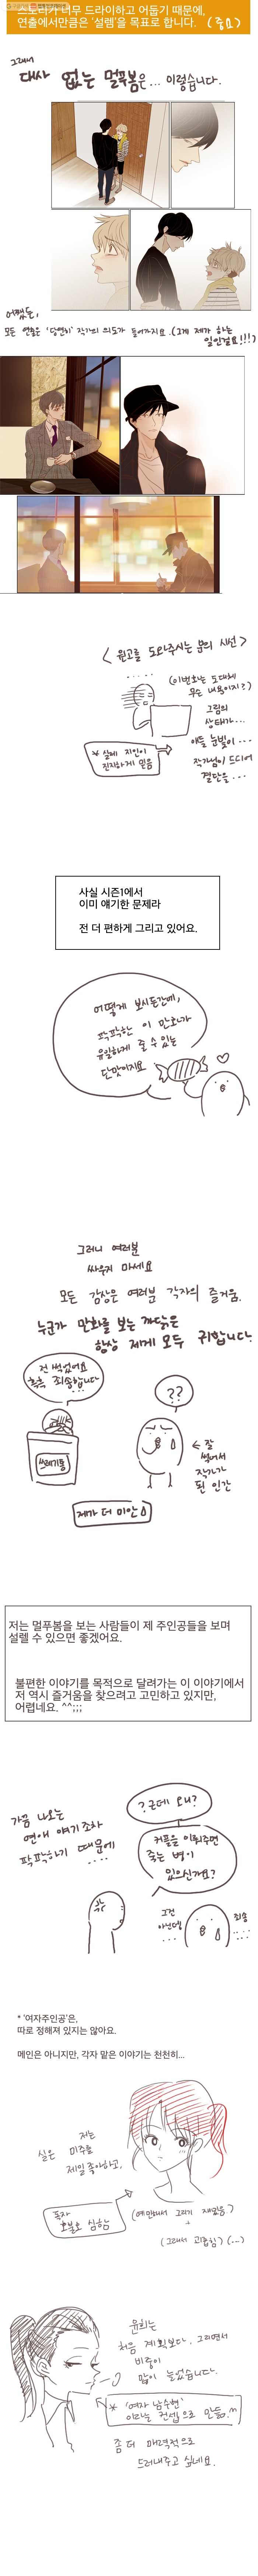 스토리가 너무 드라이하고 어둡기 때문에,
연출에서만큼은 '설렘'을 목표로 합니다. (중요)
그래서
대사 없는 멀푸봄은... 이렇습니다.
어쨌든,
모든 연출은 '당연히' 작가의 의도가 들어가지요. (그게 제가 하는
일인걸요!!!)
< 원고를 도와주시는 분의 시선 >
(이번화는 도대체
무슨 내용이지?)
그림의
상태가...
애들 눈빛이...
작가님이 드디어
결단을...
* 실제 지인이
진지하게 믿음
사실 시즌1에서
이미 얘기한 문제라
전 더 편하게 그리고 있어요.
어떻게 보시든간에,
팍팍한 이 만화가
유일하게 줄 수 있는
단맛이지요
그러니 여러분
싸우지 마세요
모든 감상은 여러분 각자의 즐거움.
누군가 만화를 보는 까닭은
항상 제게 모두 귀합니다.
전 썩었어요
흑흑 죄송합니다
쓰레기통
??
← 잘
썩어서
작가가
된 인간
제가 더 미안
저는 멀푸봄을 보는 사람들이 제 주인공들을 보며
설렐 수 있으면 좋겠어요.
불편한 이야기를 목적으로 달려가는 이 이야기에서
저 역시 즐거움을 찾으려고 고민하고 있지만,
어렵네요. ^^;;;
가끔 나오는
연애 얘기조차
팍팍하기 때문에
....
? 근데 왜?
커플을 이뤄주면
죽는 병이
있으신가요?
그건
아닌데
...
죄송
....
* '여자주인공'은,
따로 정해져 있지는 않아요.
메인은 아니지만, 각자 맡은 이야기는 천천히...
저는
실은 미주를
제일 좋아하고,
독자
호불호 심하는
(예민해서 그리기 재밌음)
+
(그래서 괴롭힘) (...)
윤희는
처음 계획보다, 그리면서
비중이
많이 늘었습니다.
* '여자 남수현'
이라는 컨셉으로 만듦.^^
좀 더 매력적으로
드러내주고 싶네요.